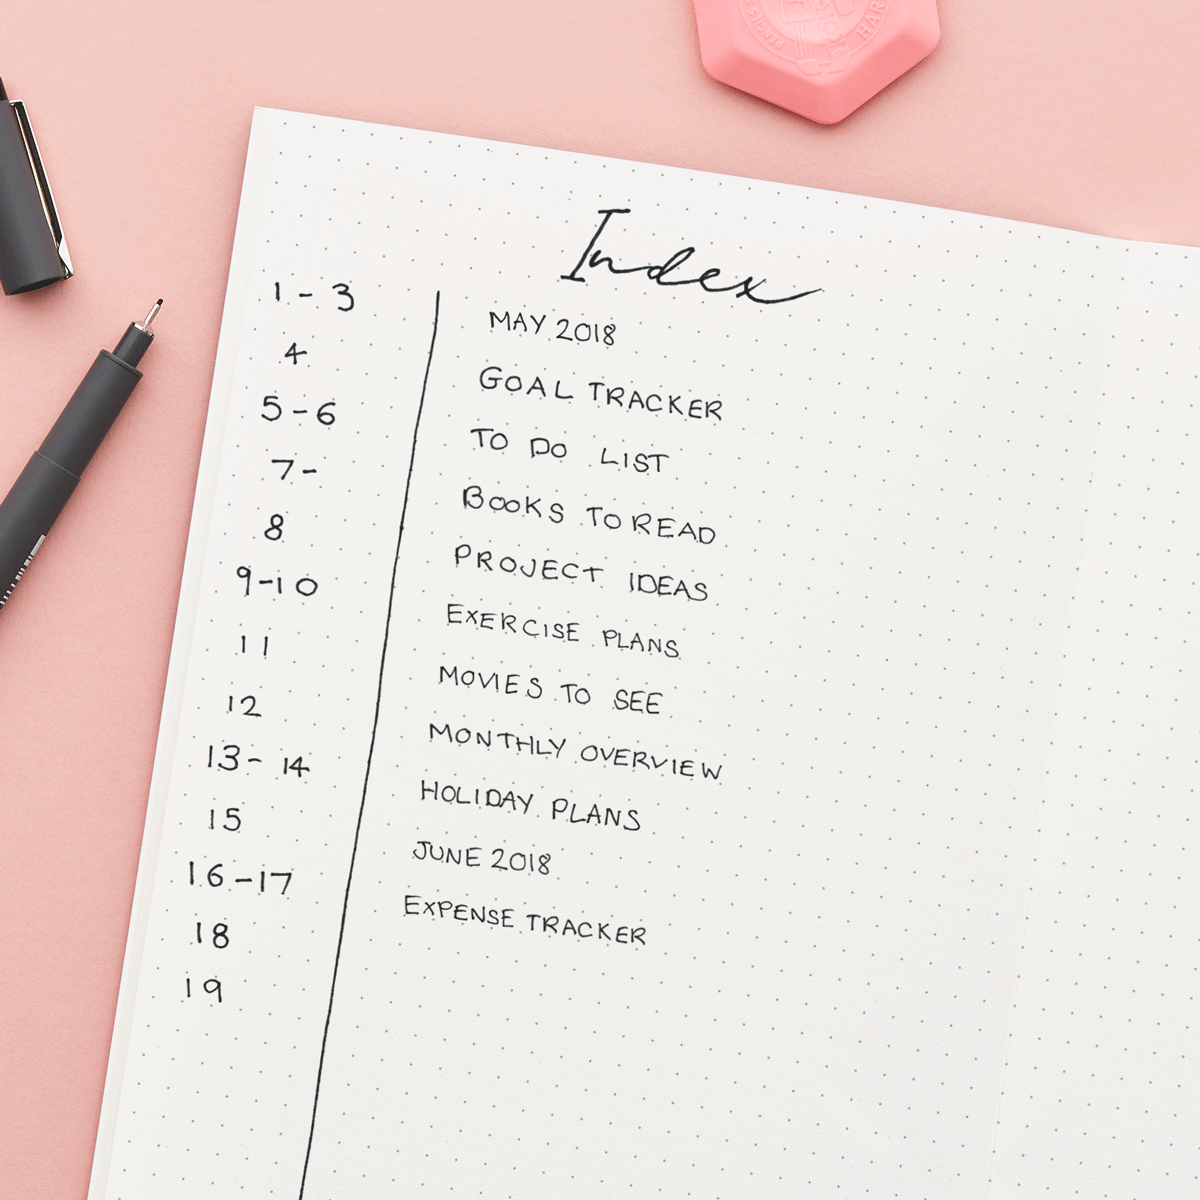 Index
1-3 MAY 2018
4 GOAL TRACKER
5-6 TO DO LIST
7- BOOKS TO READ
8 PROJECT IDEAS
9-10 EXERCISE PLANS
11 MOVIES TO SEE
12 MONTHLY OVERVIEW
13-14 HOLIDAY PLANS
15 JUNE 2018
16-17 EXPENSE TRACKER
18
19